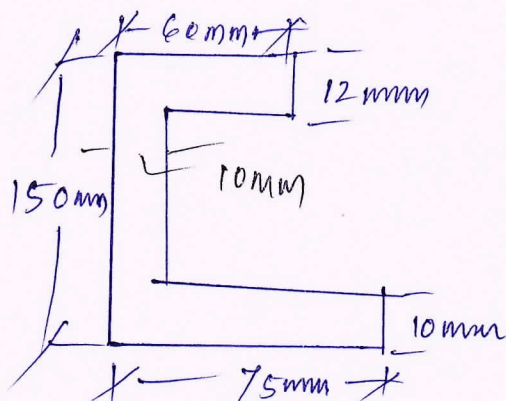 60mm
12mm
150mm
10mm
10mm
75mm